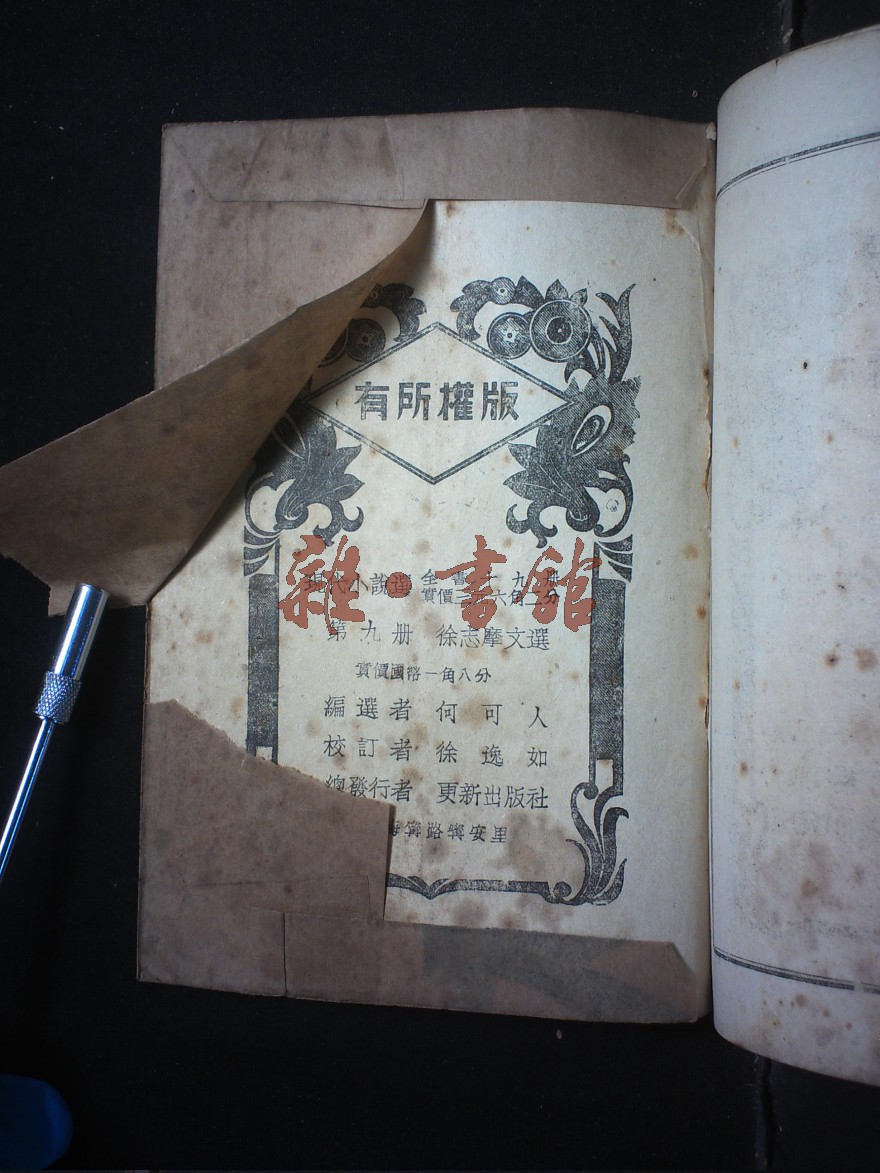 有所權版
現代小說選 全書十九冊
實價三元六角二分
第九冊 徐志摩文選
實價國幣一角八分
編選者 何可人
校訂者 徐逸如
總發行者 更新出版社
海寗路寗安里
雜·書館